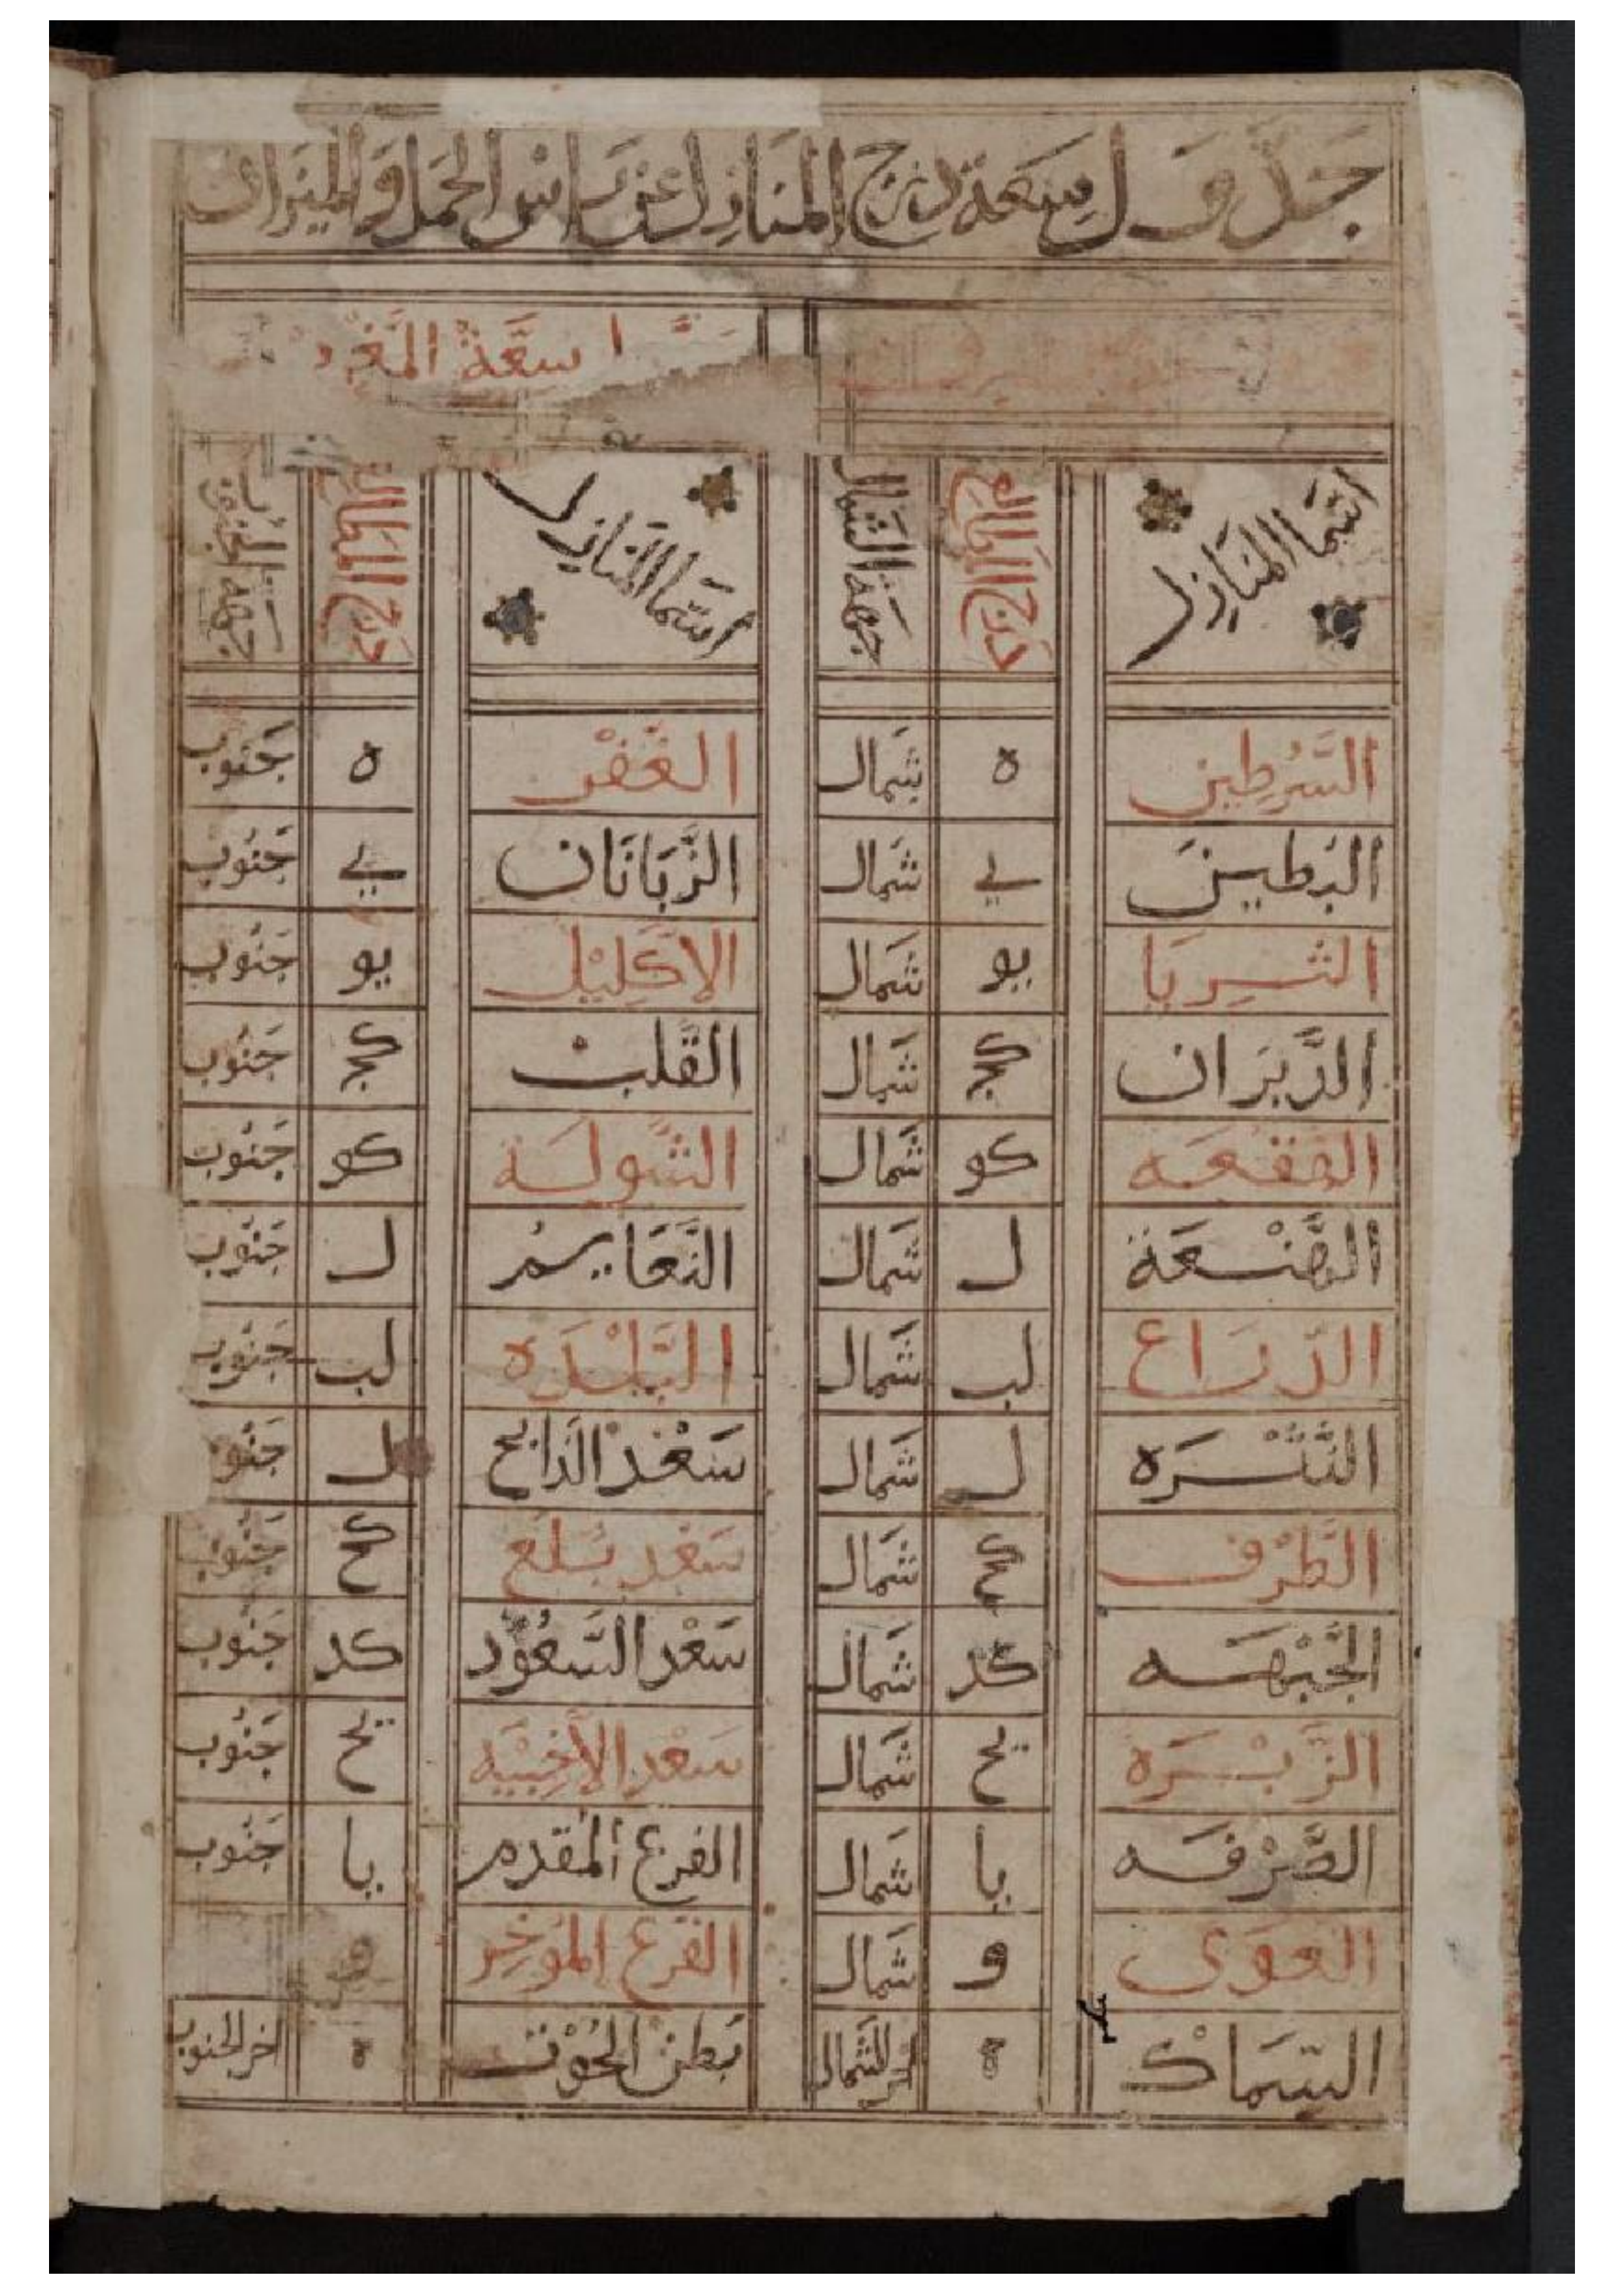 جَدْوَل سِعَة درج المَنَازِل عن راس الحَمَل وَالمِيزان
سعَّةُ المَغر
اسما المنَازِل درج المطالع جهة الشمال اسما المنازل درج المطالع جهة الجنوب
السَّرطين ه شمال الغَفْر ه جنوب
البَطين ي شمال الزَّبَانَان ي جَنُوب
الثريا يو شمال الاكَلِيْل يو جنُوب
الدَّبَران كج شمال القَلب كج جَنُوب
الهقعَه كو شمال الشَّولَة كو جنُوب
الهَنْعَة ل شمال النَّعَايم ل جَنُوب
الذراع لب شمال البَلْدَه لب جنوب
النَّثْرَه ل شمال سَعْد الذابح ل جنو
الطَّرْف كح شمال سَعْد بَلَع كح جنُوب
الجَبْهَه كد شمال سَعْد السَّعُوْد كد جنُوب
الزَّبْرَه يح شمال سَعْد الأَخْبِيَه يح جنُوب
الصَّرْفَه يا شمال الفرع المُقَدم يا جنُوب
العَوَى و شمال الفَرع المُوَخِر و
السِّمَاك ه اخر الشمال بَطن الحُوْت ه اخر الجنوب